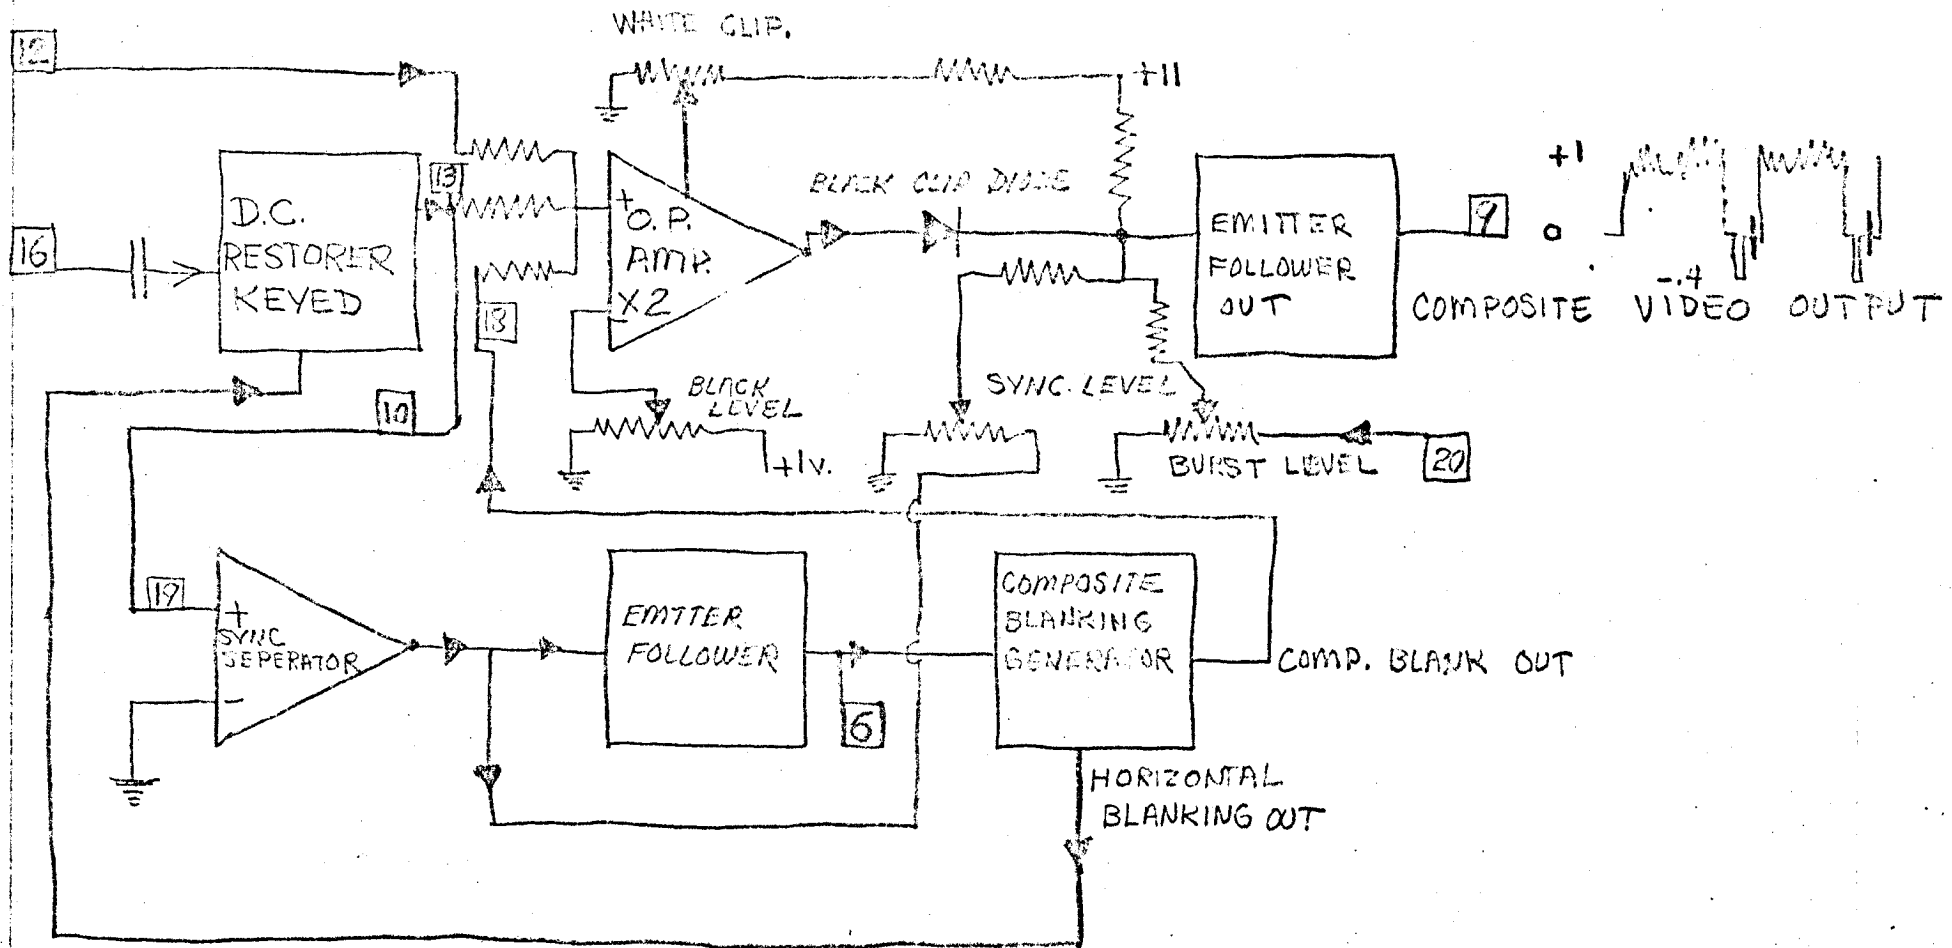 WHITE CLIP.
12
+11
13
D.C.
RESTORER
KEYED
16
+
O.P.
AMP.
X2
-
18
BLACK CLIP DIODE
EMITTER
FOLLOWER
OUT
9
+1
0
-.4
COMPOSITE VIDEO OUTPUT
10
BLACK
LEVEL
+1v.
SYNC. LEVEL
BURST LEVEL
20
19
+
SYNC
SEPERATOR
-
EMTTER
FOLLOWER
6
COMPOSITE
BLANKING
GENERATOR
COMP. BLANK OUT
HORIZONTAL
BLANKING OUT